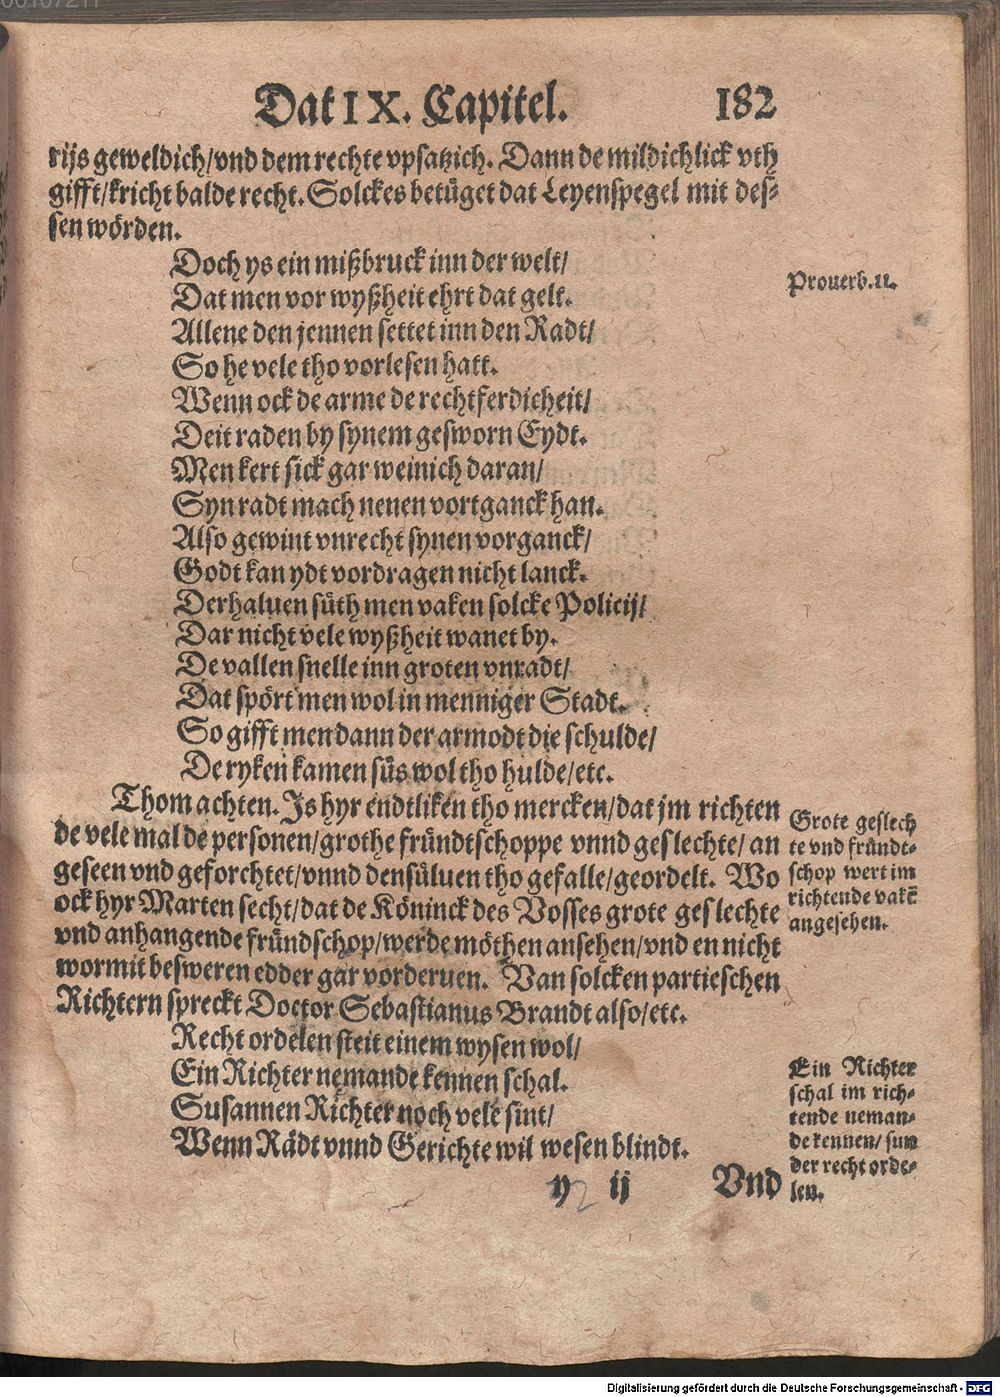 Dat IX. Capitel. 182
rijs geweldich/vnd dem rechte vpsatzich. Dann de mildichlick vth
gifft/kricht balde recht. Solckes betüget dat Leyenspegel mit des-
sen wörden.
Doch ys ein mißbruck inn der welt/
Dat men vor wyßheit ehrt dat gelt.
Prouerb. 11.
Allene den jennen settet inn den Radt/
So he vele tho vorlesen hatt.
Wenn ock de arme de rechtferdicheit/
Deit raden by synem gesworn Eydt.
Men kert sick gar weinich daran/
Syn radt mach nenen vortganck han.
Also gewint vnrecht synen vorganck/
Godt kan ydt vordragen nicht lanck.
Derhaluen süth men vaken solcke Policij/
Dar nicht vele wyßheit wanet by.
De vallen snelle inn groten vnradt/
Dat spört men wol in menniger Stadt.
So gifft men dann der armodt die schulde/
De ryken kamen süs wol tho hulde/etc.
Thom achten. Is hyr endtliken tho mercken/dat jm richten
de vele mal de personen/grothe fründtschoppe vnnd geslechte/ an
geseen vnd geforchtet/vnnd densüluen tho gefalle/geordelt. Wo
ock hyr Marten secht/dat de Köninck des Vosses grote geslechte
vnd anhangende fründschop/werde möthen ansehen/vnd en nicht
wormit besweren edder gar vorderuen. Van solcken partieschen
Richtern spreckt Doctor Sebastianus Brandt also/etc.
Grote geslech
te vnd fründt-
schop wert im
richtende vakē
angesehen.
Recht ordelen steit einem wysen wol/
Ein Richter nemande kennen schal.
Susannen Richter noch vele sint/
Wenn Rädt vnnd Gerichte wil wesen blindt.
Ein Richter
schal im rich-
tende neman-
de kennen/ sun
der recht orde-
len.
y ij Vnd
Digitalisierung gefördert durch die Deutsche Forschungsgemeinschaft - DFG